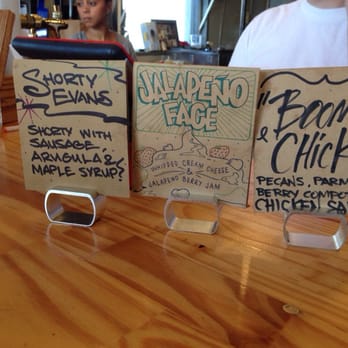 SHORTY
EVANS
SHORTY WITH
SAUSAGE,
ARUGULA &
MAPLE SYRUP?
JALAPEÑO
FACE
WHIPPED CREAM CHEESE
&
JALAPEÑO BERRY JAM
"BOOM
CHICK
PECANS, PARM
BERRY COMPO
CHICKEN SA